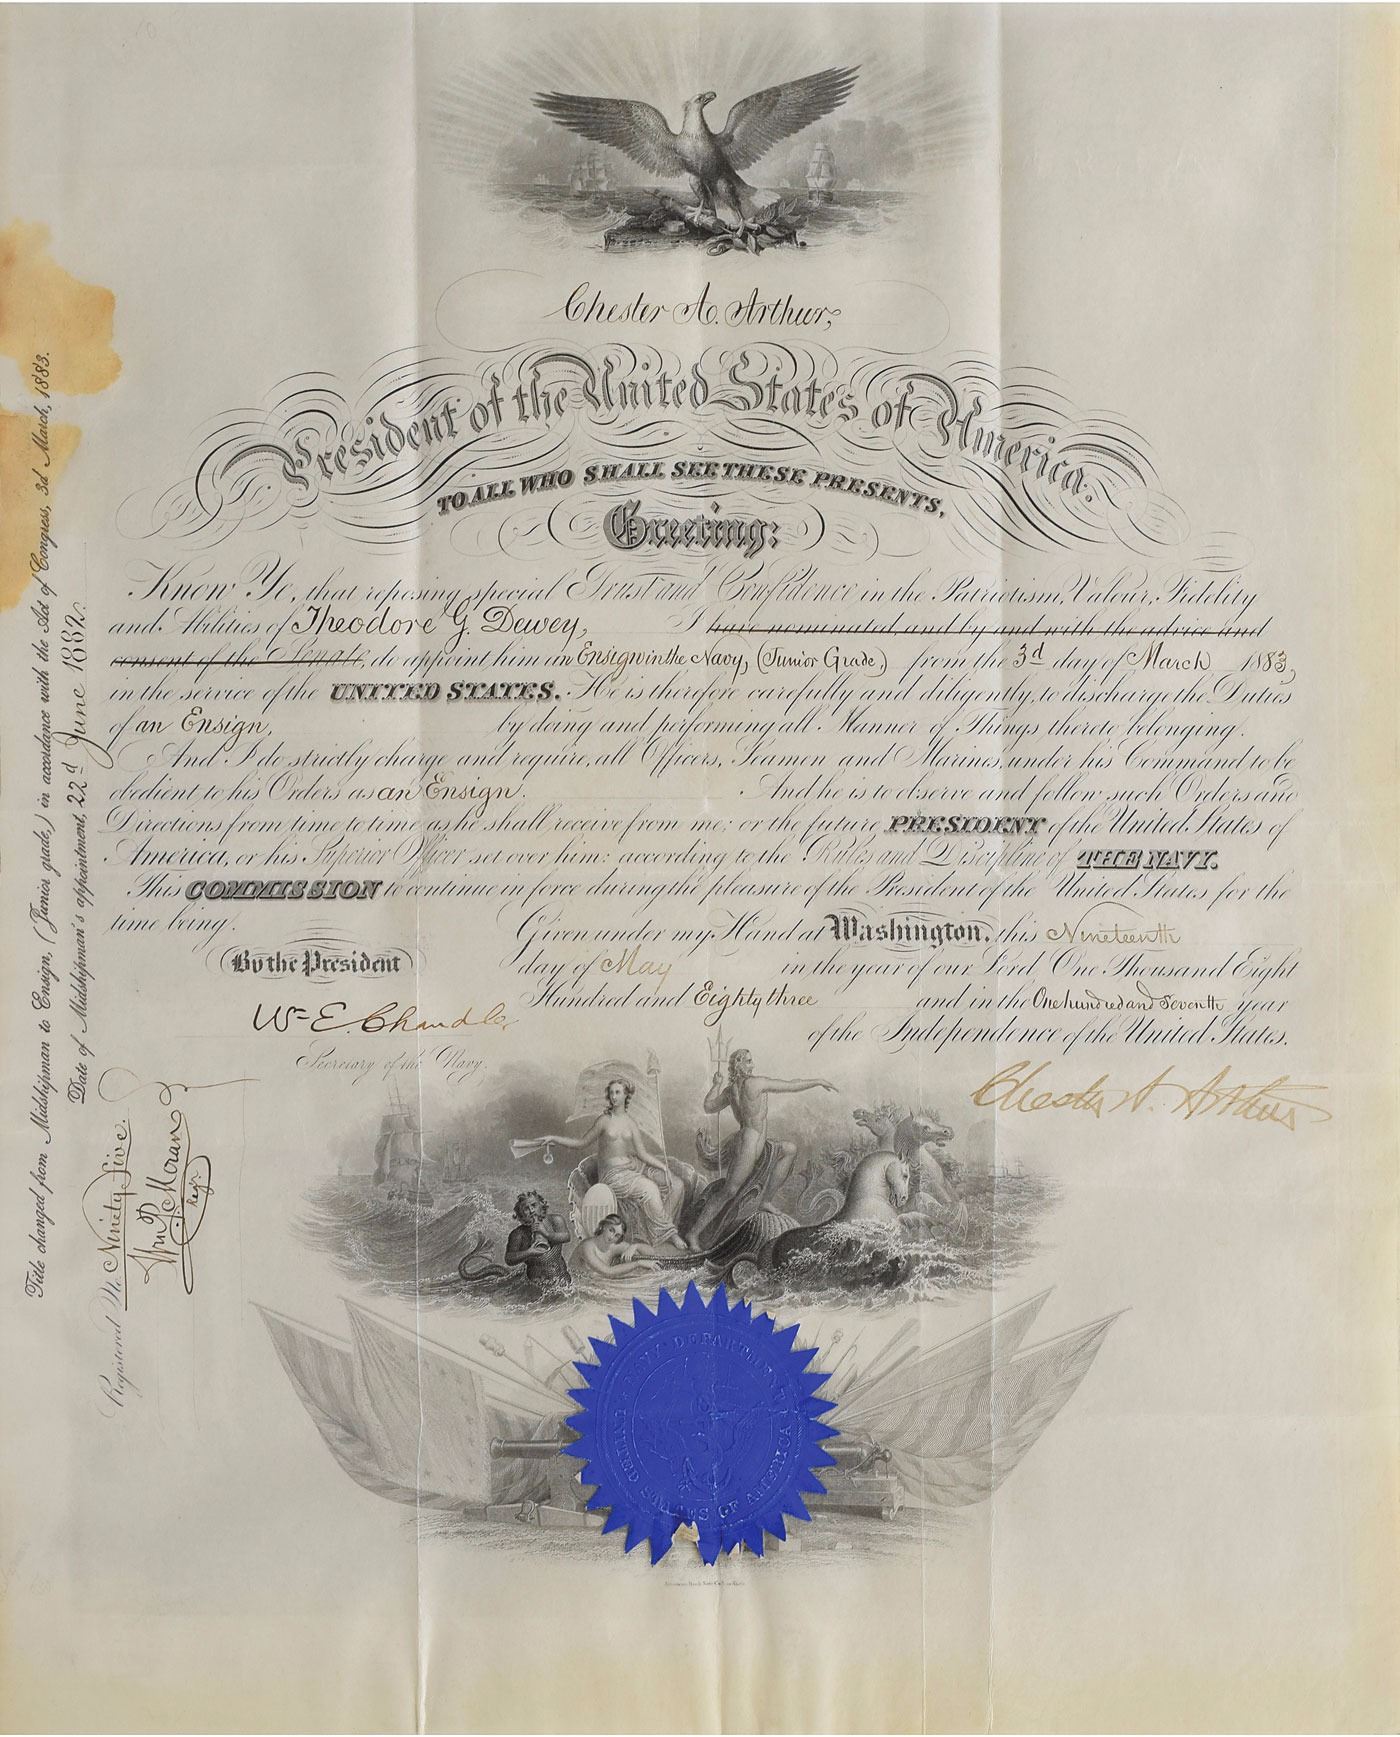 Chester A. Arthur,
President of the United States of America.
TO ALL WHO SHALL SEE THESE PRESENTS,
Greeting:
Know Ye, that reposing special Trust and Confidence in the Patriotism, Valour, Fidelity
and Abilities of Theodore G. Dewey, I have nominated and by and with the advice and
consent of the Senate, do appoint him an Ensign in the Navy, (Junior Grade,) from the 3d day of March 1883,
in the service of the UNITED STATES. He is therefore carefully and diligently, to discharge the Duties
of an Ensign, by doing and performing all Manner of Things thereto belonging.
And I do strictly charge and require, all Officers, Seamen and Marines, under his Command to be
obedient to his Orders as an Ensign. And he is to observe and follow such Orders and
Directions from time to time as he shall receive from me; or the future PRESIDENT of the United States of
America, or his Superior Officer set over him: according to the Rules and Discipline of THE NAVY.
This COMMISSION to continue in force during the pleasure of the President of the United States for the
time being.
Given under my Hand at Washington, this Nineteenth
day of May in the year of our Lord One Thousand Eight
Hundred and Eighty three and in the One hundred and Seventh year
of the Independence of the United States.
By the President
Wm E. Chandler
Secretary of the Navy.
Chester A. Arthur
Title changed from Midshipman to Ensign, (Junior grade,) in accordance with the Act of Congress, 3d March, 1883.
Date of Midshipman's appointment, 22d June 1882.
Registered No. Ninety Five.
Wm P. Moran
Regr.
NAVY DEPARTMENT
UNITED STATES OF AMERICA